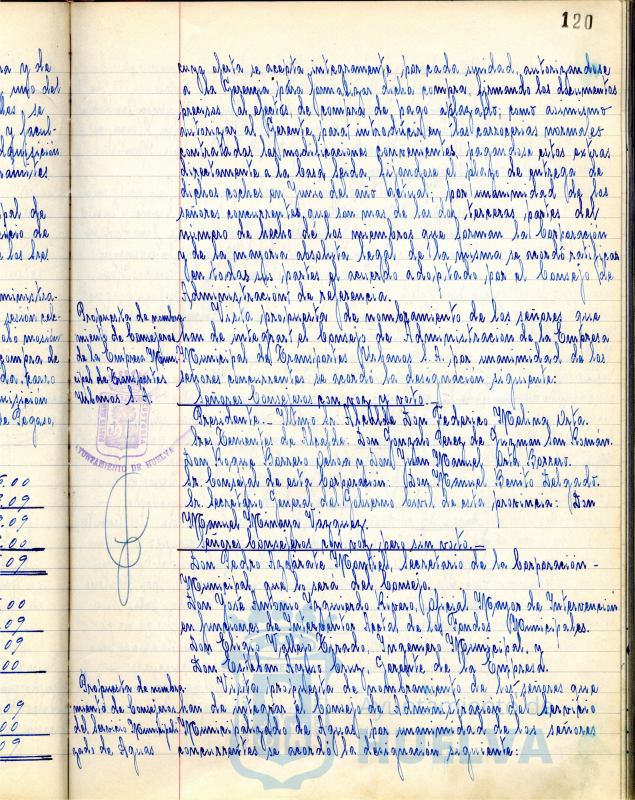 120
cuya oferta se acepta íntegramente por cada unidad, autorizandose
a la Gerencia para formalizar dicha compra, firmando los documentos
precisos a efectos de compra de pago aplazado; como asimismo
autorizar al Gerente para introducir en las carrocerias normales
contratadas las modificaciones convenientes, pagandose estos extras
directamente a la Casa Seida, fijandose el plazo de entrega de
dichos coches en Junio del año actual; por unanimidad de los
señores concurrentes, que son mas de las dos terceras partes del
número de hecho de los miembros que forman la Corporación
y de la mayoria absoluta legal de la misma se acordó ratificar
en todas sus partes el acuerdo adoptado por el Consejo de
Administración de referencia.
Propuesta de nombra-
miento de Consejeros
de la Empresa Muni-
cipal de Transportes
Urbanos S.A.
Vista propuesta de nombramiento de los señores que
han de integrar el Consejo de Administracion de la Empresa
Municipal de Transportes Urbanos S.A. por unanimidad de los
señores concurrentes se acordó la designación siguiente:
Señores Consejeros con voz y voto.-
Presidente.- Iltmo Sr. Alcalde Don Federico Molina Orta.
Tres Tenientes de Alcalde: Don Gonzalo Perez de Guzman San Román.
Don Roque Barrero y Don Juan Manuel Orta Borrero.
Sr. Concejal de esta Corporación: Don Manuel Benito Delgado.
Sr. Secretario General del Gobierno Civil de esta provincia: Don
Manuel Minaya Vazquez.
Señores Consejeros con voz pero sin voto.-
Don Pedro Azcárate Montiel, Secretario de la Corporación -
Municipal, que lo será del Consejo.
Don José Antonio Izquierdo Rivero, Oficial Mayor de Intervención
en funciones de Interventor Acctal de los Fondos Municipales.
Don Eligio Tirado, Ingeniero Municipal, y
Don Esteban Cruz, Gerente de la Empresa.
AYUNTAMIENTO DE HUELVA
Propuesta de nombra-
miento de Consejeros
del Servicio Municipali-
zado de Aguas
Vista propuesta de nombramiento de los señores que
han de integrar el Consejo de Administración del Servicio
Municipalizado de Aguas, por unanimidad de los señores
concurrentes se acordó la designación siguiente:
HUELVA